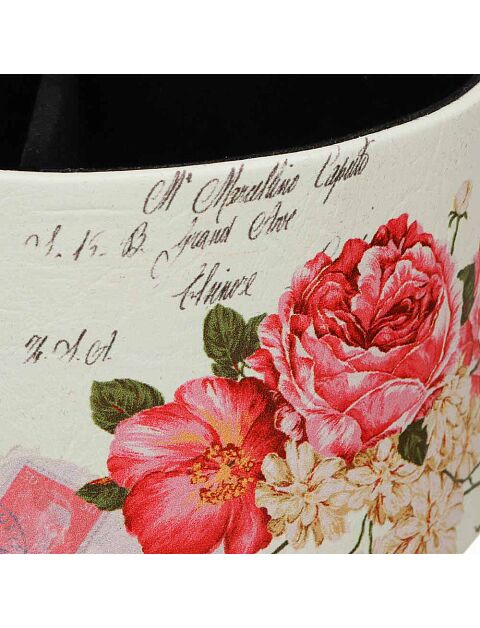 Mr Marcellino Caputo
S. 15. B. Grand Ave
Chinore
U.S.A.